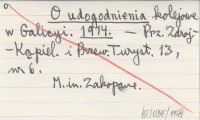 O udogodnienia kolejowe
w Galicyi. 1914. — Prz. Zdroj.-
Kąpiel. i Przew. Turyst. 13,
nr 6.
M. in. Zakopane.